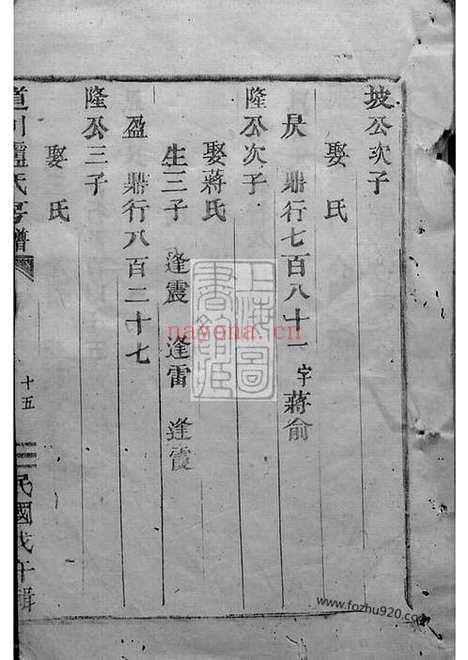 坡公次子
娶 氏
昃 鼎行七百八十一 字蔣俞
隆公次子
娶蔣氏
生三子 逢震 逢雷 逢霞
盈 鼎行八百二十七
隆公三子
娶 氏
盧氏 譜
十五
民國戊午輯
上海圖書館藏
nayona.cn
www.fozhu920.com